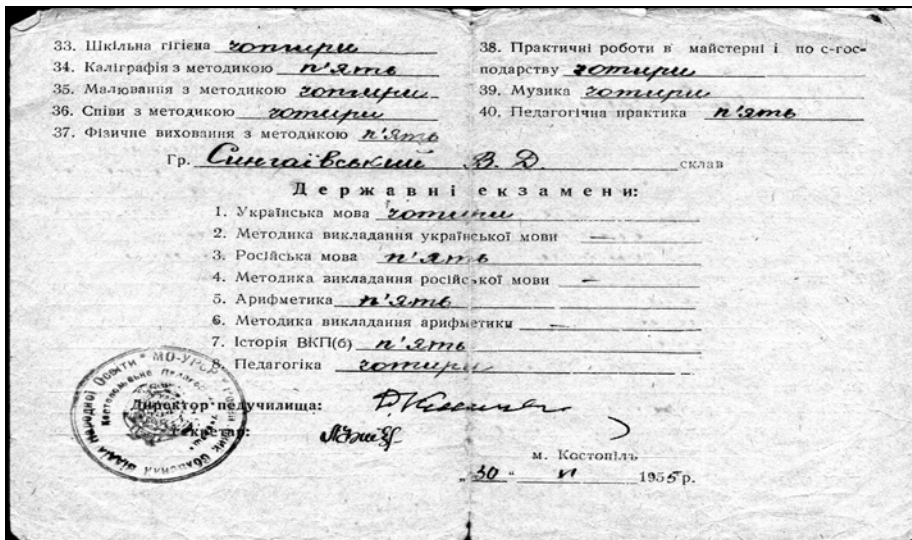 33. Шкільна гігієна чотири
34. Каліграфія з методикою п'ять
35. Малювання з методикою чотири
36. Співи з методикою чотири
37. Фізичне виховання з методикою п'ять
38. Практичні роботи в майстерні і по с-гос-
подарству чотири
39. Музика чотири
40. Педагогічна практика п'ять
Гр. Сингаївський В. Д. склав
Державні екзамени:
1. Українська мова чотири
2. Методика викладання української мови —
3. Російська мова п'ять
4. Методика викладання російської мови —
5. Арифметика п'ять
6. Методика викладання арифметики —
7. Історія ВКП(б) п'ять
8. Педагогіка чотири
Народної Освіти * МО-УРСР
Директор педучилища:
Секретар:
м. Костопіль
„30" VI 1955 р.